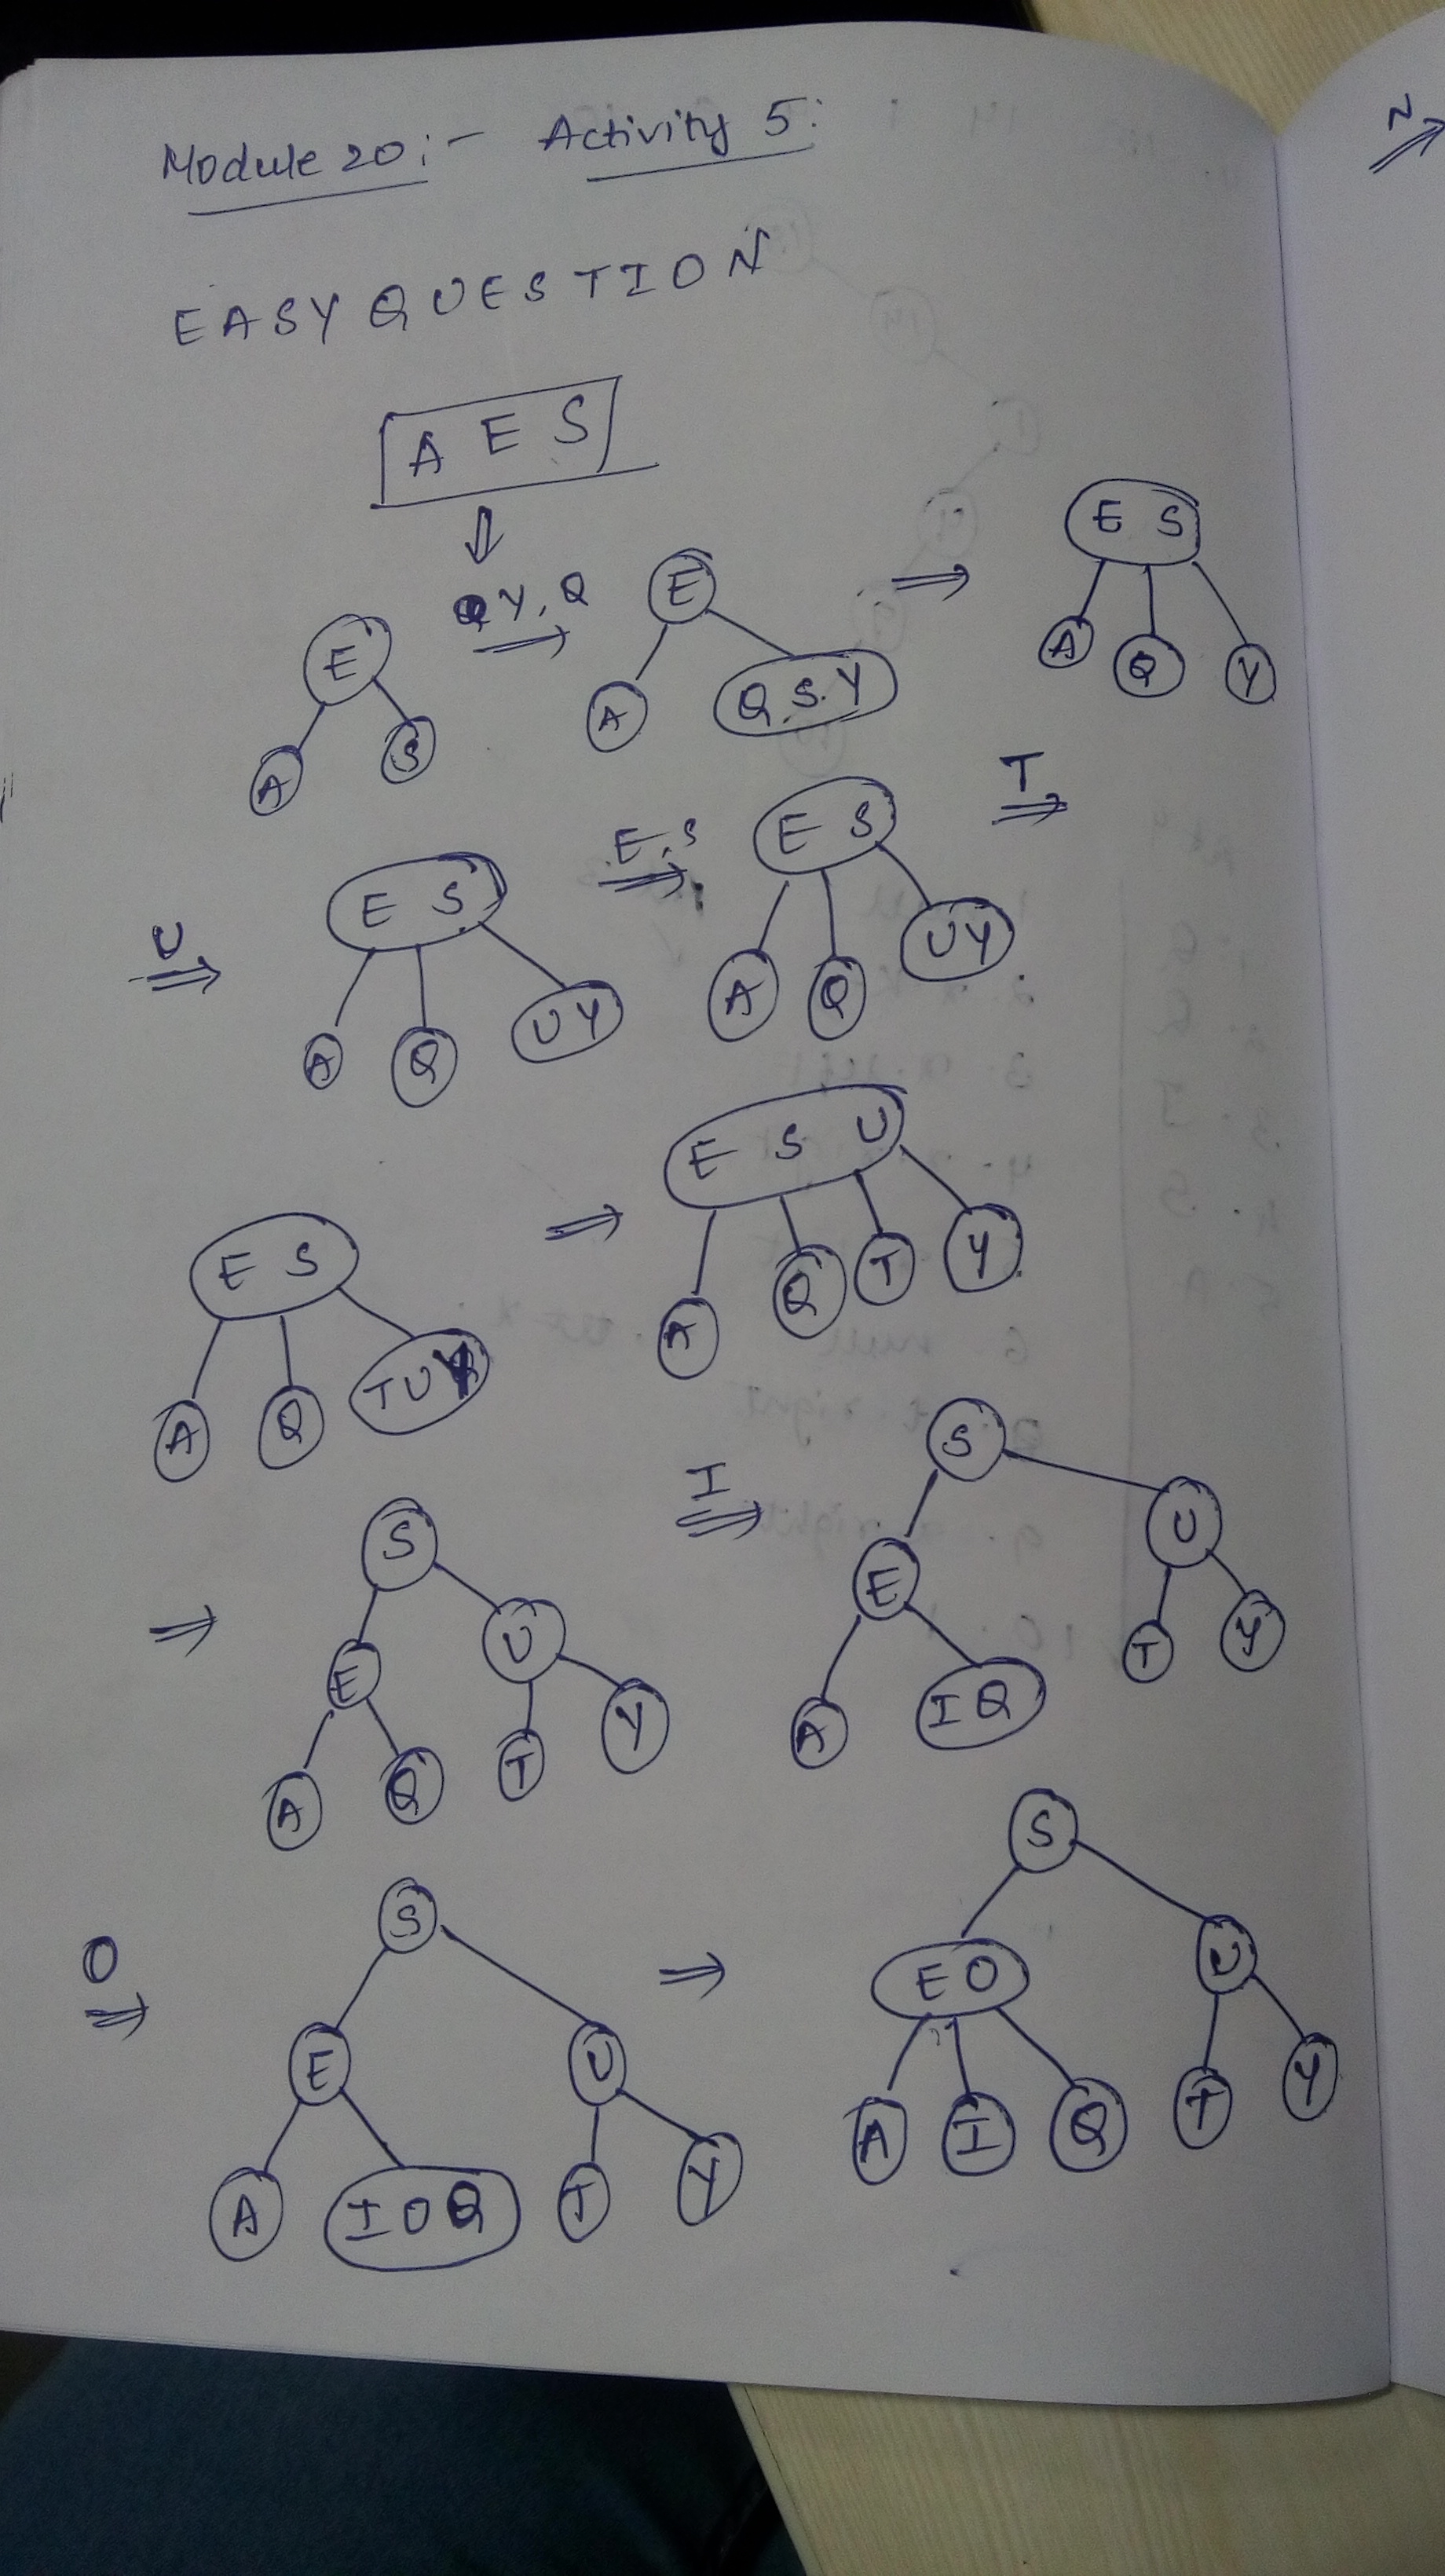 Module 20:- Activity 5:
EASYQUESTION
A E S
⇓
E
A S
Y, Q
⇒
E
A QSY
⇒
E S
A Q Y
U
⇒
E S
A Q UY
E,S
⇒
E S
A Q UY
T
⇒
E S
A Q TUY
⇒
E S U
A Q T Y
⇒
S
E U
A Q T Y
I
⇒
S
E U
A IQ T Y
O
⇒
S
E U
A IOQ T Y
⇒
S
EO U
A I Q T Y
N
⇒